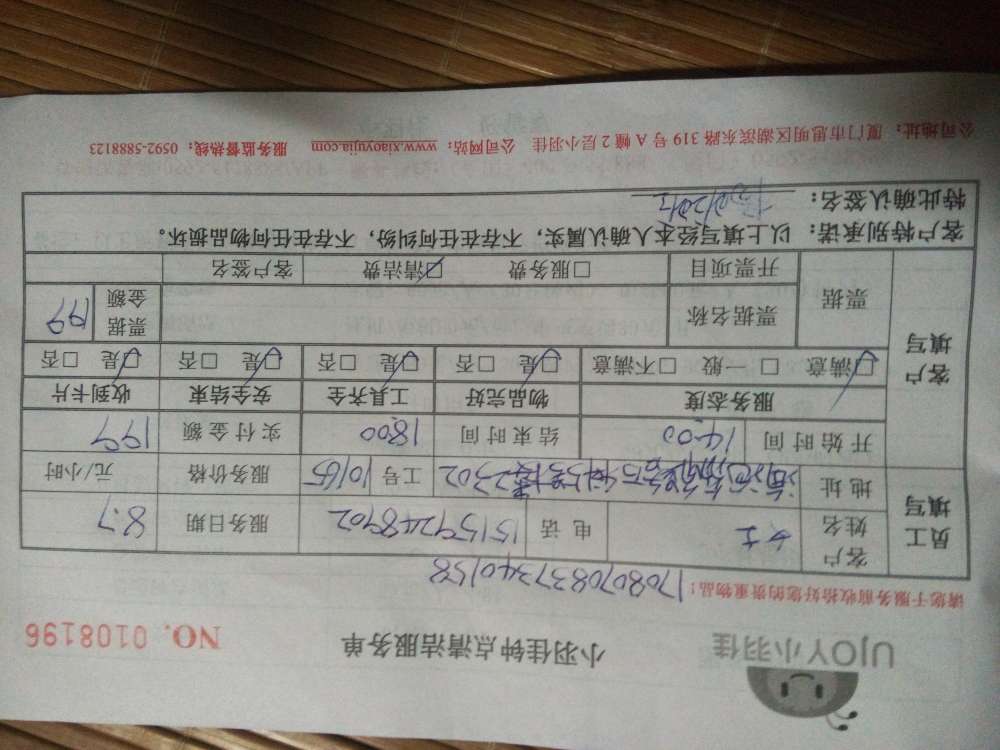 UJOY小羽佳
小羽佳钟点清洁服务单
NO. 0108196
请您于服务前收拾好您的贵重物品!
1708070837340158
员工填写
客户姓名 女士 电 话 15159248902 服务日期 8.7
地址 2302 工号 10165 服务价格 元/小时
开始时间 14:00 结束时间 18:00 实付金额 199
客户填写
服务态度 物品完好 工具齐全 安全结束 收到卡片
☑满意 □一般 □不满意 ☑是 □否 ☑是 □否 ☑是 □否 ☑是 □否
票据 票据名称 票据金额 199
开票项目 □服务费 ☑清洁费 客户签名
客户特别承诺: 以上填写经本人确认属实,不存在任何纠纷,不存在任何物品损坏。
特此确认签名:
公司地址: 厦门市思明区湖滨东路 319 号 A 幢 2 层小羽佳 公司网站: www.xiaoyujia.com 服务监督热线: 0592-5888123